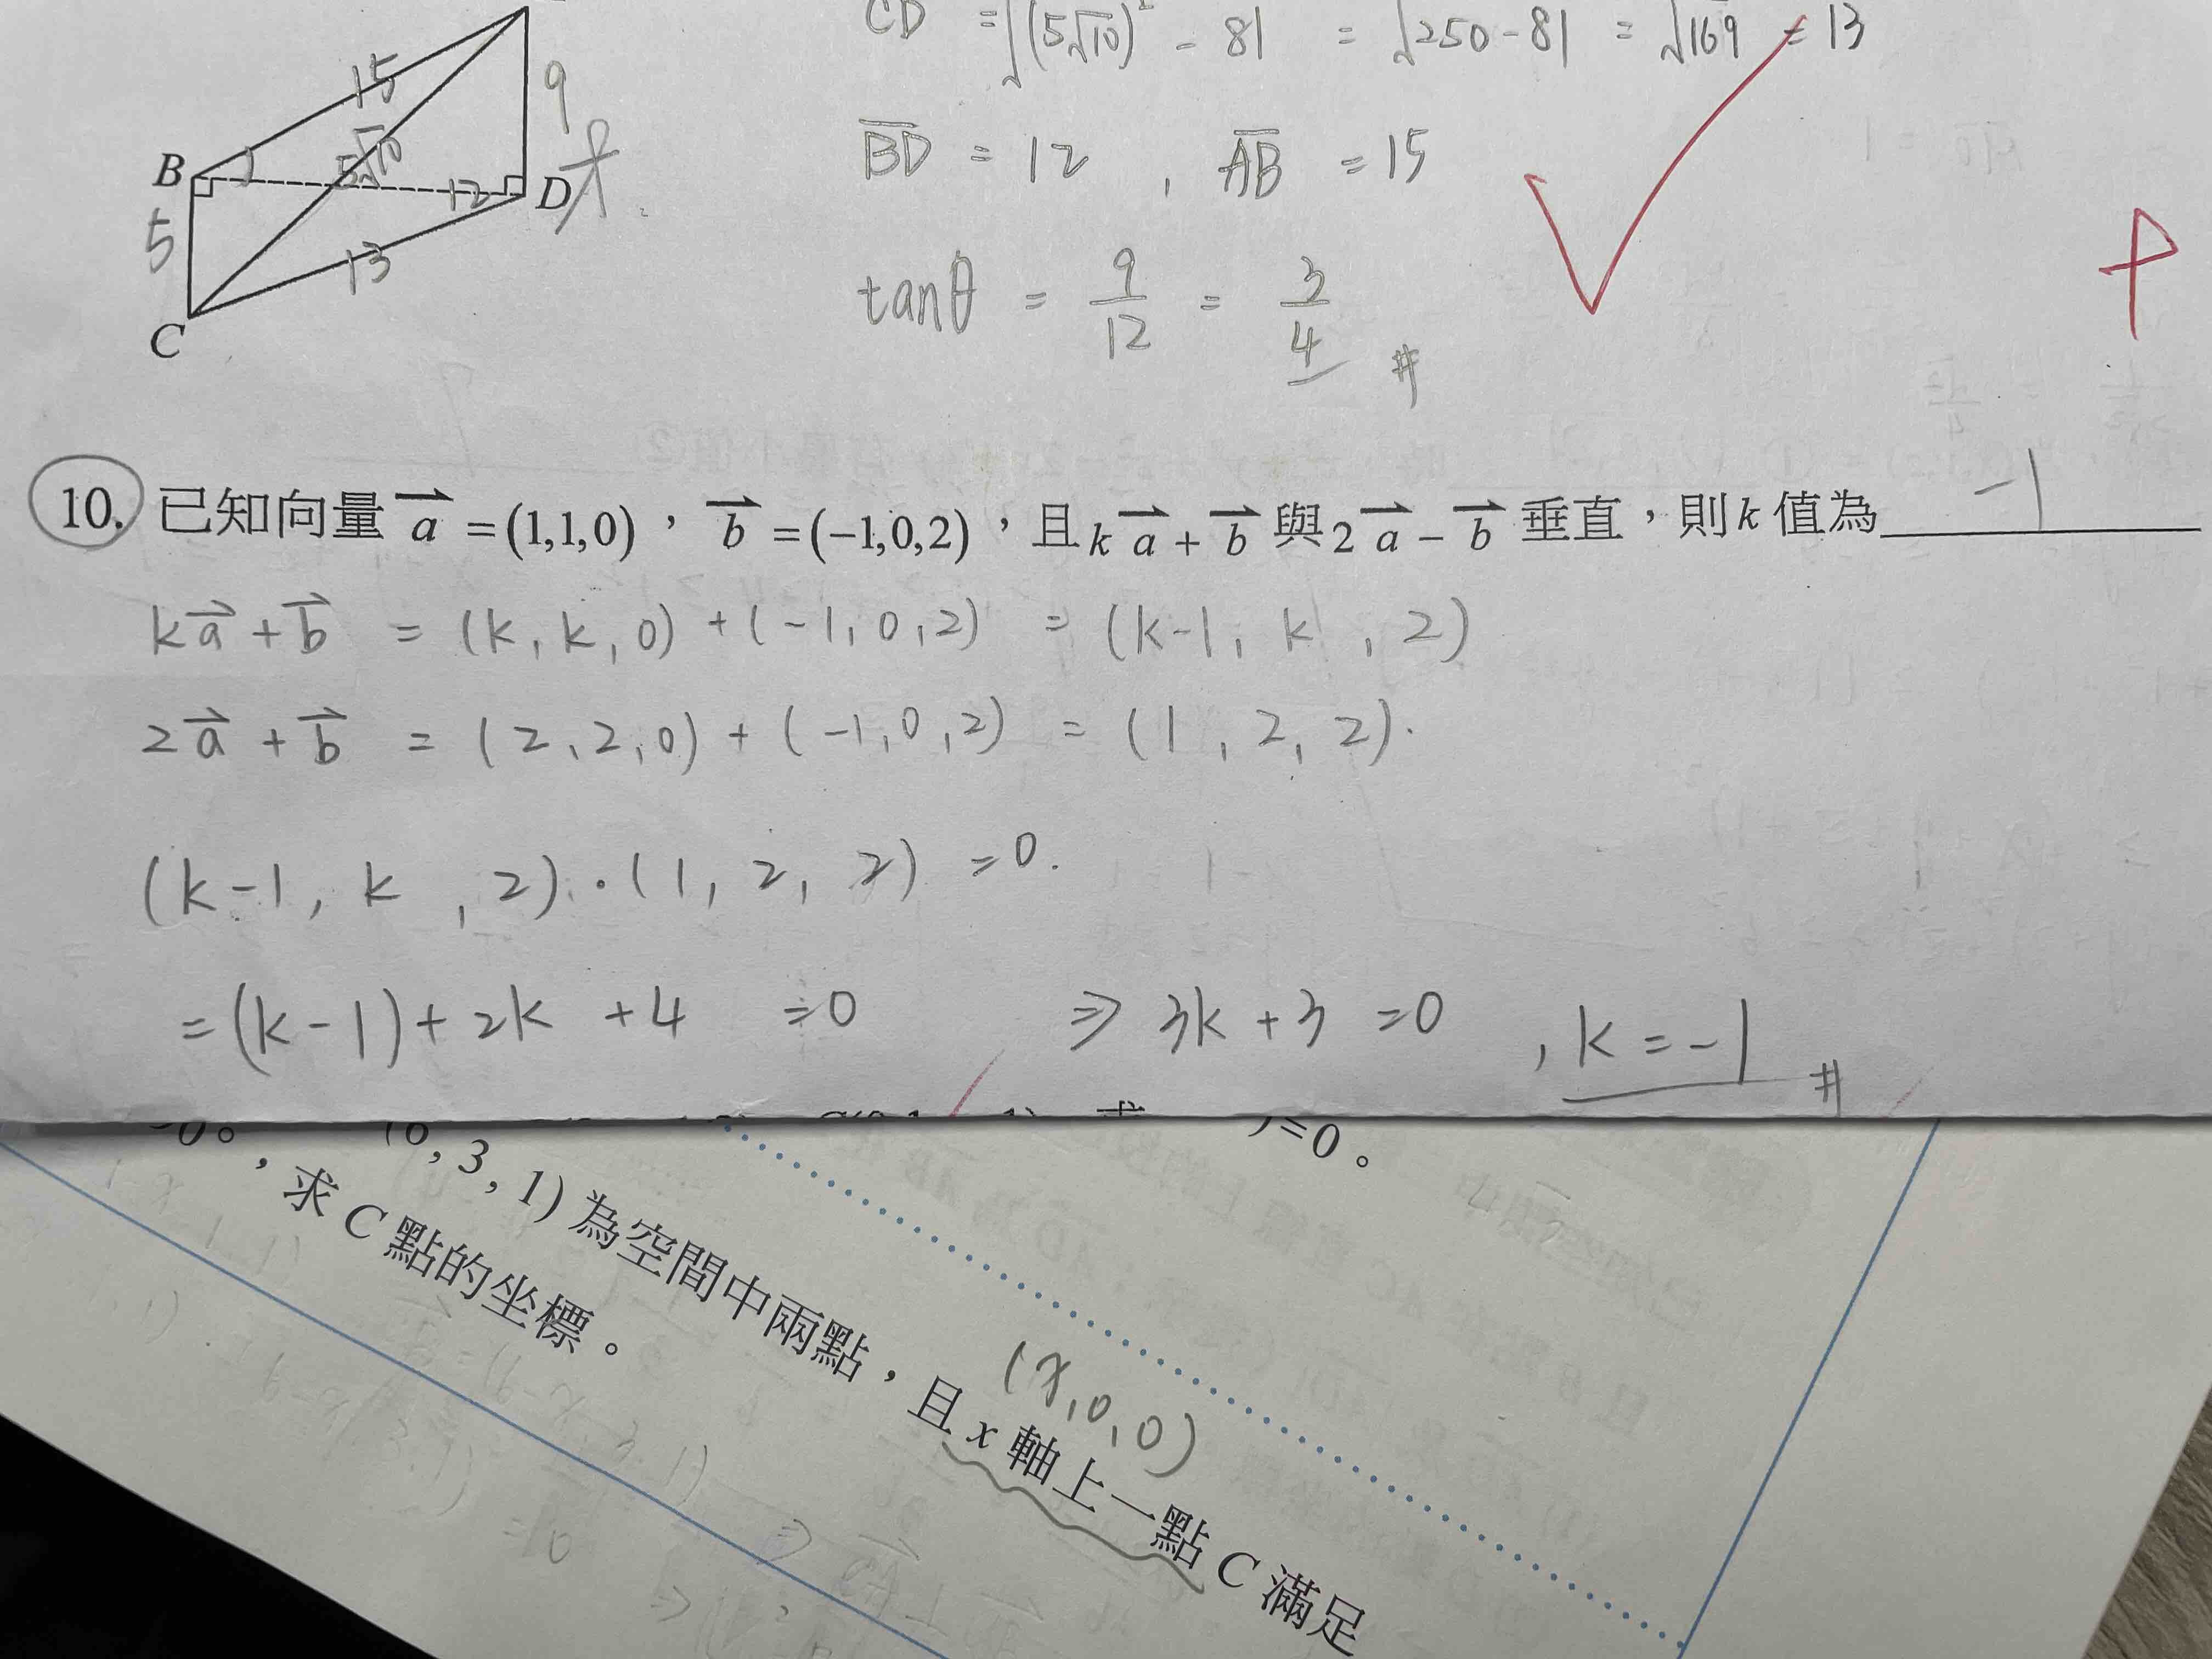 CD = √(5√10)² - 81 = √250-81 = √169 = 13
15
9
B
5√10
12
D
5
13
C
BD = 12 , AB = 15
tanθ = 9/12 = 3/4 #
10. 已知向量 a = (1,1,0),b = (-1,0,2),且 k a + b 與 2 a - b 垂直,則 k 值為 -1
ka + b = (k, k, 0) + (-1, 0, 2) = (k-1, k, 2)
2a + b = (2, 2, 0) + (-1, 0, 2) = (1, 2, 2).
(k-1, k, 2)·(1, 2, 2) = 0.
= (k-1) + 2k + 4 = 0 ⇒ 3k + 3 = 0 , k = -1 #
=0。
, 3, 1) 為空間中兩點,且 x 軸上一點 C 滿足
(x, 0, 0)
,求 C 點的坐標。